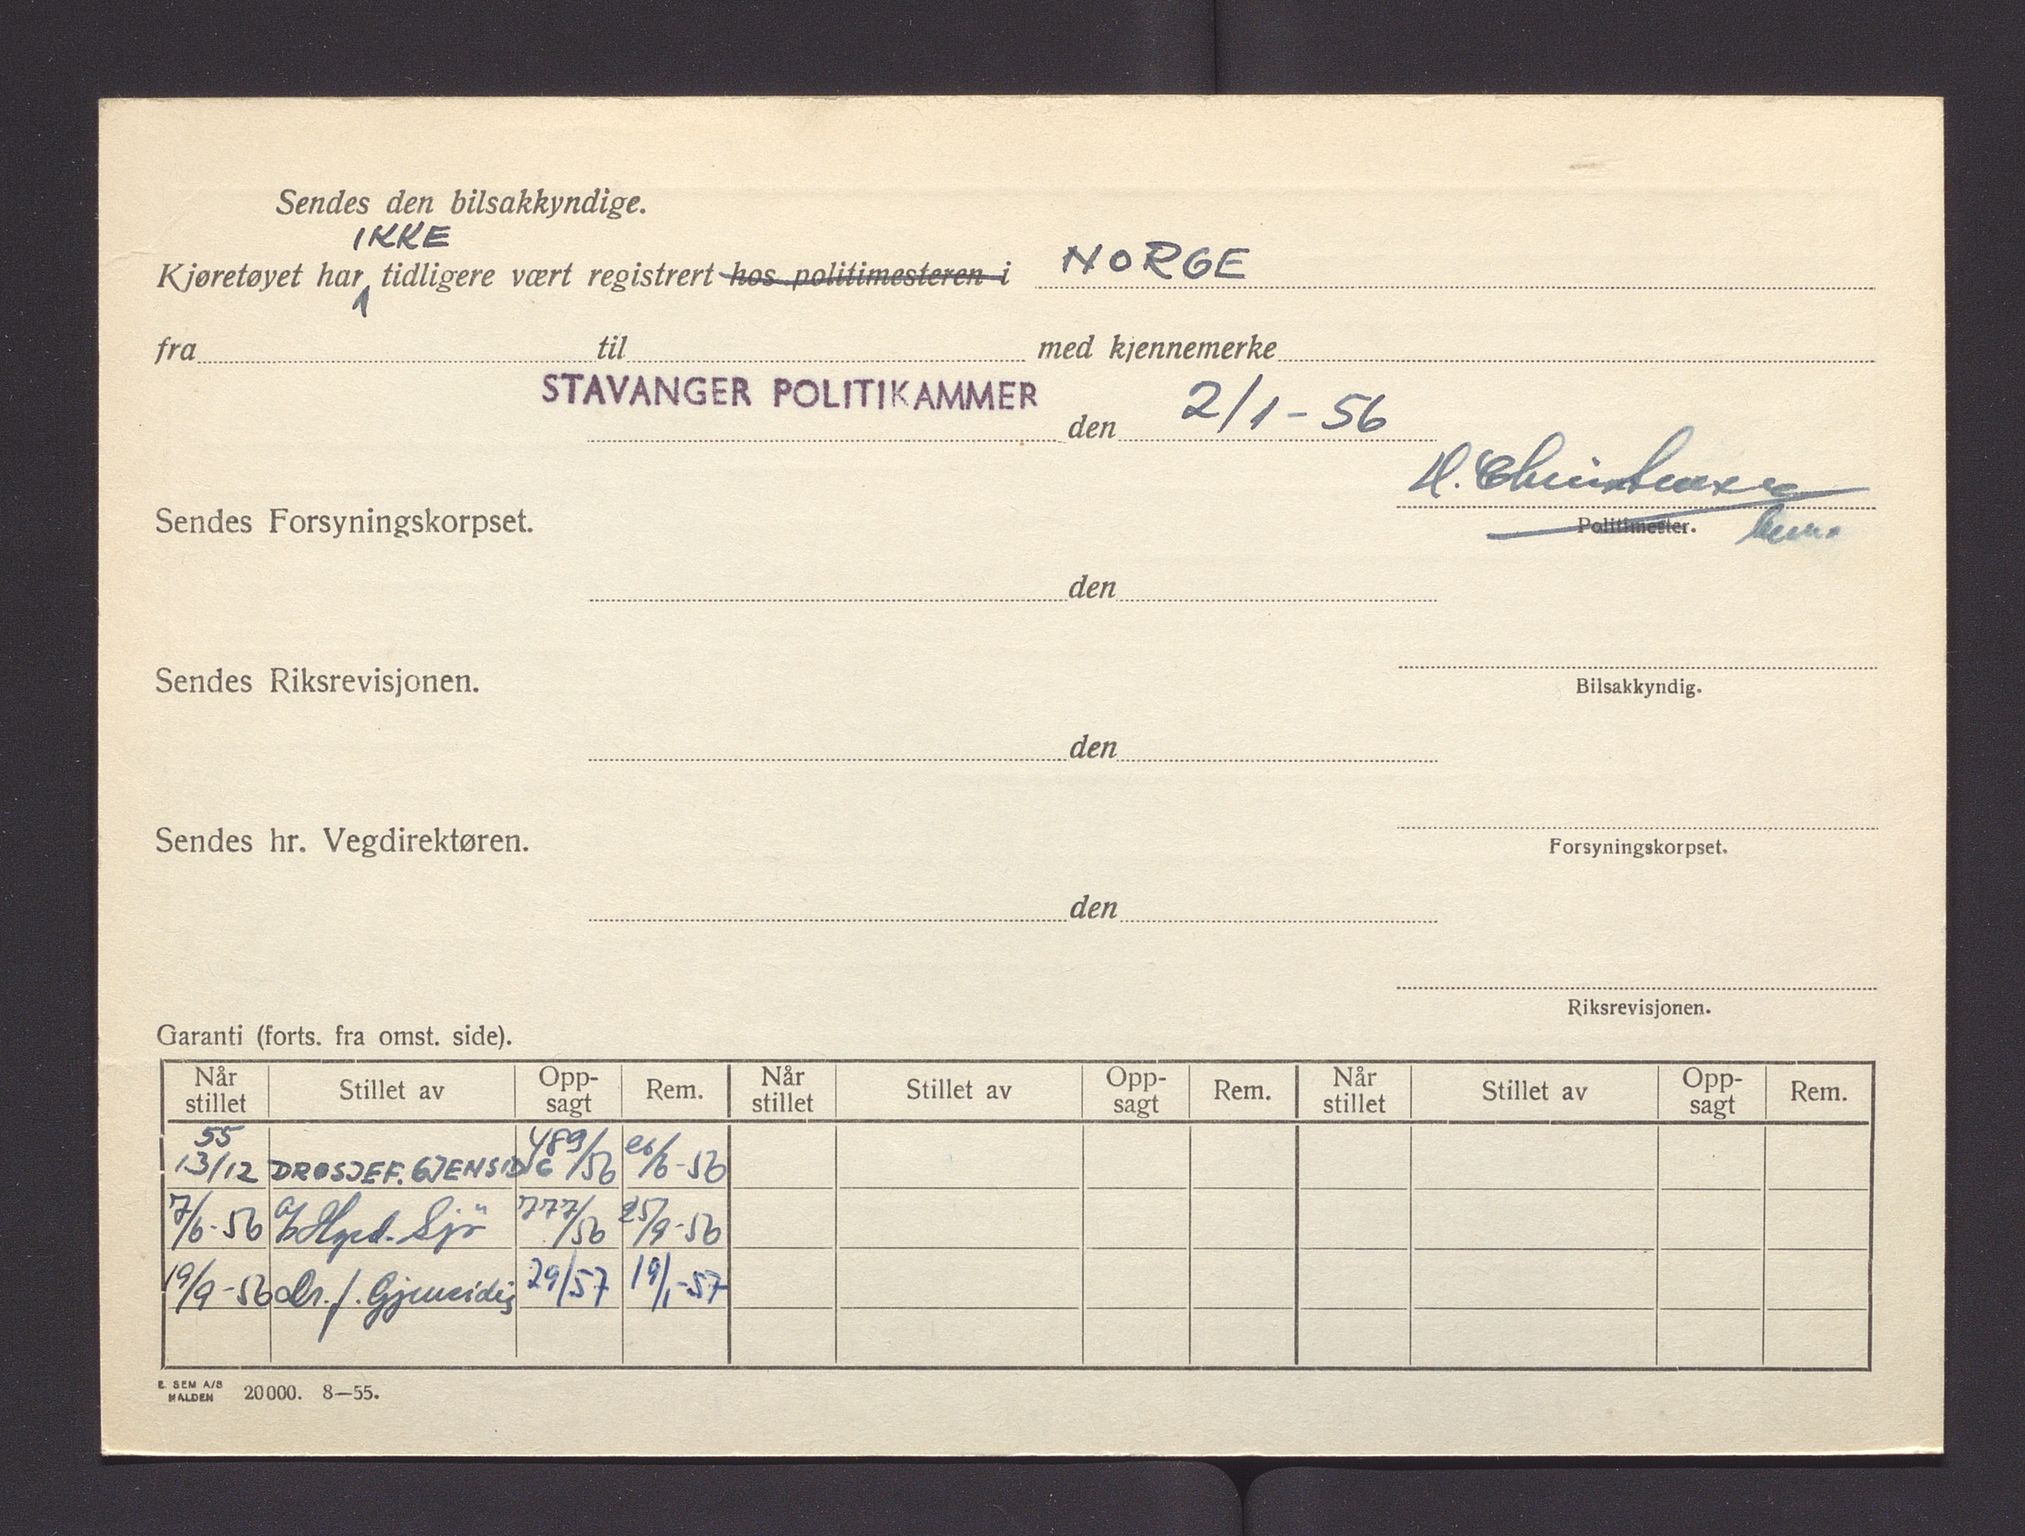 Sendes den bilsakkyndige.
IKKE
Kjøretøyet har tidligere vært registrert hos politimesteren i NORGE
fra til med kjennemerke
STAVANGER POLITIKAMMER den 2/1-56
H. Christensen
Sendes Forsyningskorpset. Politimester.
den
Sendes Riksrevisjonen. Bilsakkyndig.
den
Sendes hr. Vegdirektøren. Forsyningskorpset.
den
Riksrevisjonen.
Garanti (forts. fra omst. side).
Når stillet Stillet av Opp-sagt Rem. Når stillet Stillet av Opp-sagt Rem. Når stillet Stillet av Opp-sagt Rem.
55
13/12 DROSJEF. GJENSIDIG 489/56 26/6-56
7/6-56 Sjö 777/56 25/9-56
19/9-56 Dr. f. Gjensidig 29/57 19/1-57
E. SEM A/S
HALDEN 20000. 8—55.